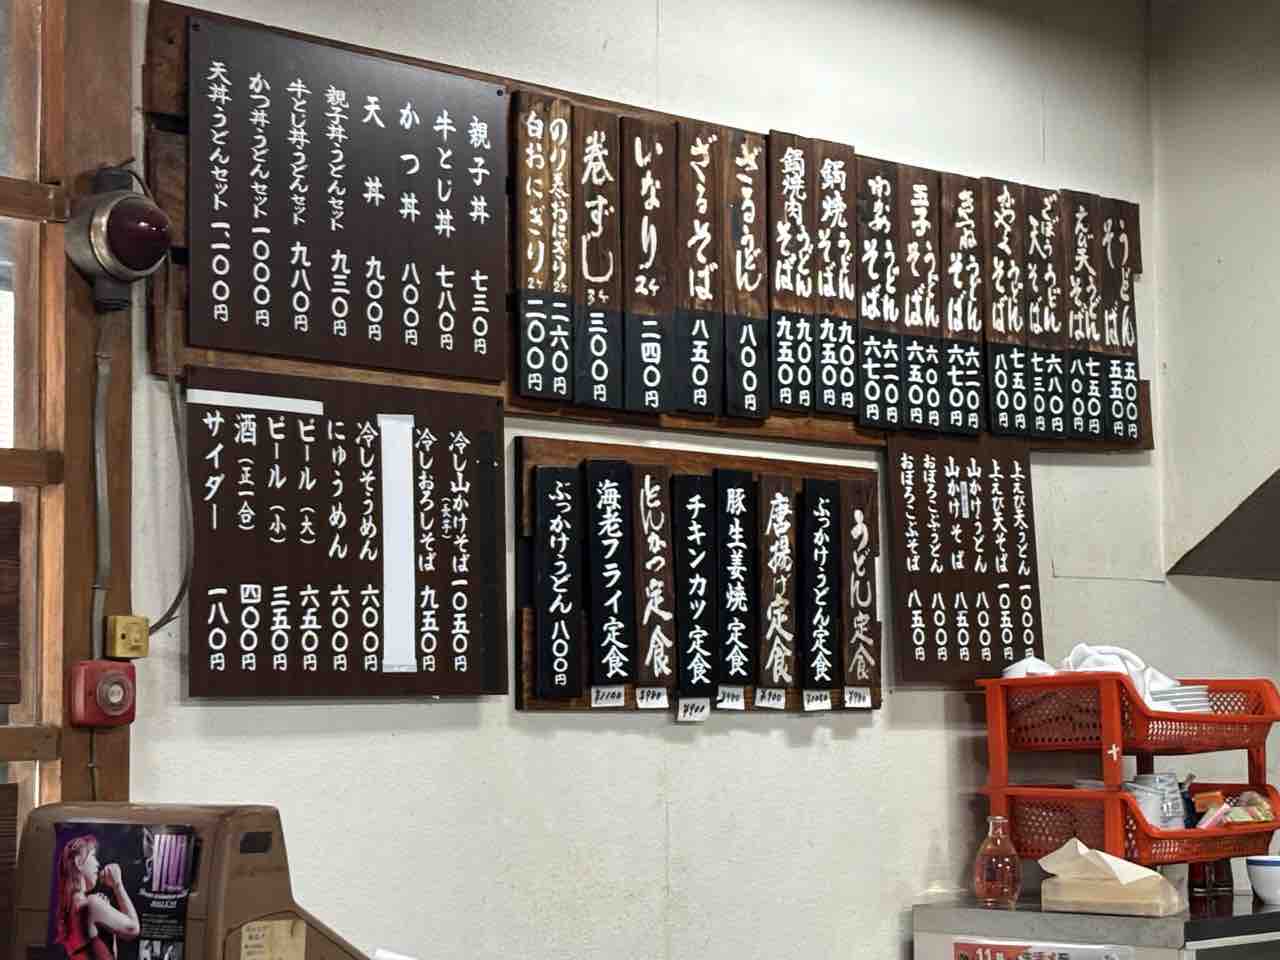 うどん 五〇〇円
そば 五五〇円
えび天うどん 七五〇円
そば 八〇〇円
ごぼう天うどん 六八〇円
そば 七三〇円
かやくうどん 七五〇円
そば 八〇〇円
きつねうどん 六二〇円
そば 六七〇円
玉子うどん 六〇〇円
そば 六五〇円
わかめうどん 六二〇円
そば 六七〇円
鍋焼うどん 九〇〇円
そば 九五〇円
鍋焼肉うどん 九〇〇円
そば 九五〇円
ざるうどん 八〇〇円
ざるそば 八五〇円
いなり2ケ 二四〇円
巻ずし3ケ 三〇〇円
のり巻おにぎり2ケ 二六〇円
白おにぎり2ケ 二〇〇円
親子丼 七三〇円
牛とじ丼 七八〇円
かつ丼 八〇〇円
天丼 九〇〇円
親子丼うどんセット 九三〇円
牛とじ丼うどんセット 九八〇円
かつ丼うどんセット 一〇〇〇円
天丼うどんセット 一、一〇〇円
上えび天うどん 一〇〇〇円
上えび天そば 一〇五〇円
山かけうどん 八〇〇円
山かけそば 八五〇円
おぼろこぶうどん 八〇〇円
おぼろこぶそば 八五〇円
うどん定食 ¥980
ぶっかけうどん定食 ¥1080
唐揚げ定食 ¥900
豚生姜焼定食 ¥980
チキンカツ定食 ¥900
とんかつ定食 ¥980
海老フライ定食 ¥1100
ぶっかけうどん 八〇〇円
冷し山かけそば 一〇五〇円
冷しおろしそば 九五〇円
冷しそうめん 六〇〇円
にゅうめん 六〇〇円
ビール(大) 六五〇円
ビール(小) 三五〇円
酒(正一合) 四〇〇円
サイダー 一八〇円